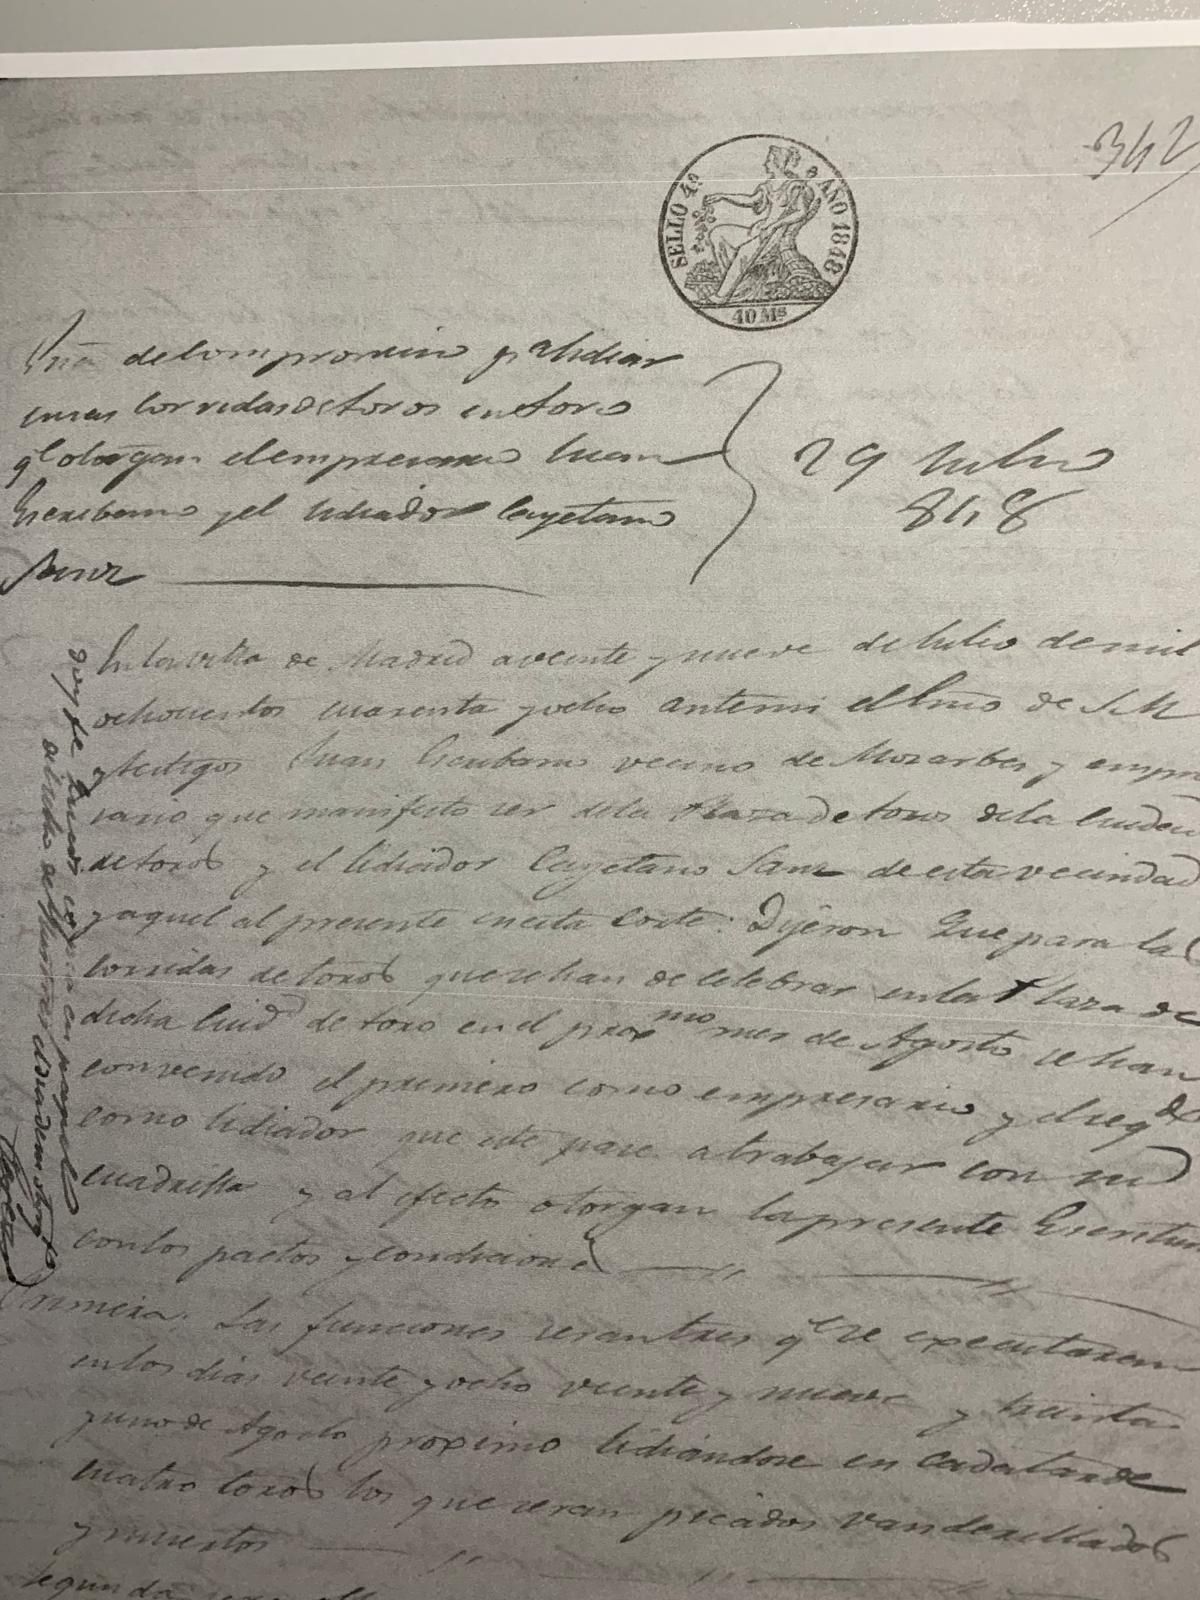 342
SELLO 4º AÑO 1848
40 Ms
de compromiso pª lidiar
unas corridas de toros en toro
qe otorgan el empresario Juan
Escribano y el lidiador Cayetano
Sanz
29 Julio
848
En la villa de Madrid a veinte y nueve de Julio de mil
ochocientos cuarenta y ocho ante mi el Esno de S M
y testigos Juan Escribano vecino de Mozarbes y empre
sario que manifesto ser de la Plaza de toros de la Ciudad
de toro y el lidiador Cayetano Sanz de esta vecindad
y aquel al presente en esta Corte: Dijeron Que para las
corridas de toros que se han de celebrar en la Plaza de
dicha Ciudd de toro en el proxmo mes de Agosto se han
convenido el primero como empresario y el segdo
como lidiador que este pase a trabajar con su
cuadrilla y al efecto otorgan la presente Escritura
con los pactos y condiciones
Primera. Las funciones seran tres qe se executaran
en los dias veinte y ocho veinte y nueve y treinta
y uno de Agosto proximo lidiandose en cada tarde
cuatro toros los que seran picados vanderillados
y muertos
Segunda
doy fe